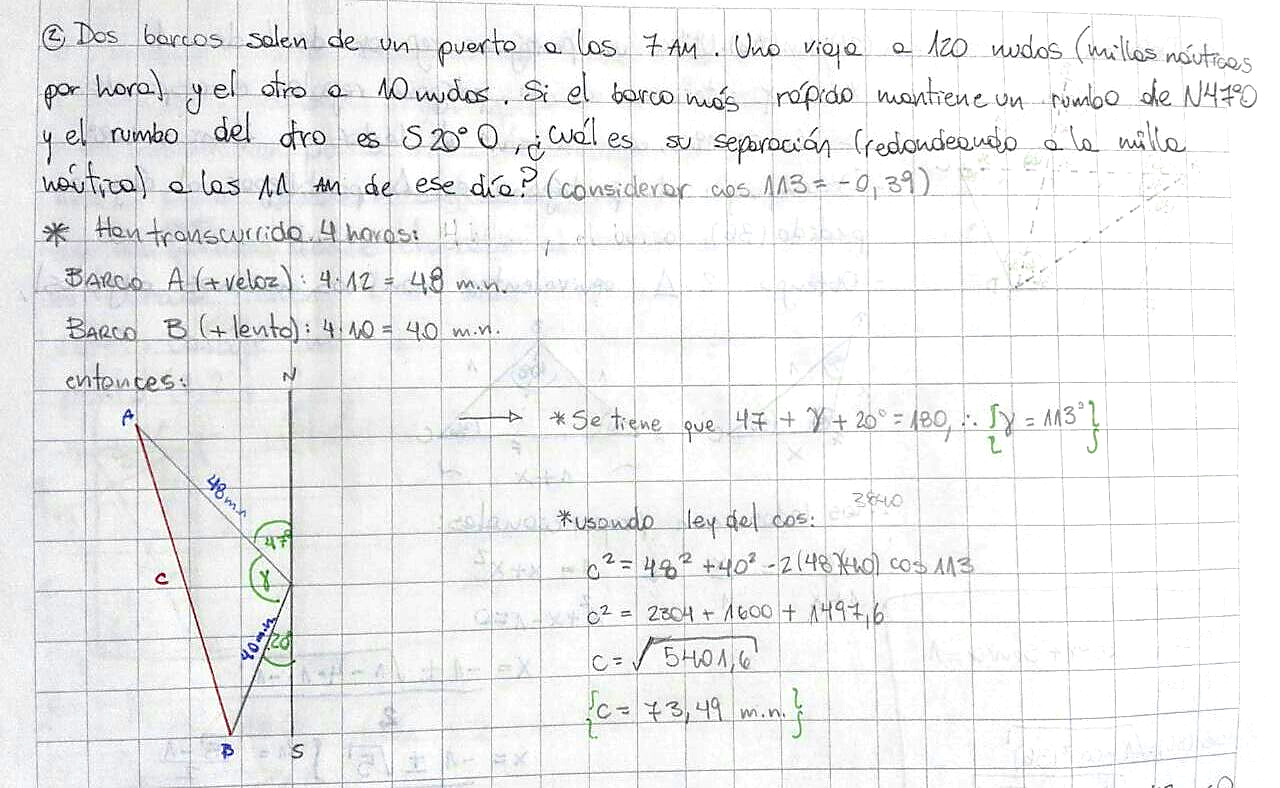 ② Dos barcos salen de un puerto a las 7 AM. Uno viaja a 120 nudos (millas náuticas
por hora) y el otro a 10 nudos. Si el barco más rápido mantiene un rumbo de N47°O
y el rumbo del otro es S20°O, ¿cuál es su separación (redondeando a la milla
náutica) a las 11 AM de ese día? (considerar cos 113 = -0,39)
* Han transcurrido 4 horas:
BARCO A (+veloz): 4·12 = 48 m.n.
BARCO B (+lento): 4·10 = 40 m.n.
entonces:
N
A
48 m.n
47°
C
γ
40 m.n
20°
B
S
→ * Se tiene que 47 + γ + 20° = 180, ∴ {γ = 113°}
3840
* usando ley del cos:
c² = 48² + 40² - 2(48)(40) cos 113
c² = 2304 + 1600 + 1497,6
c = √5401,6
{c = 73,49 m.n.}